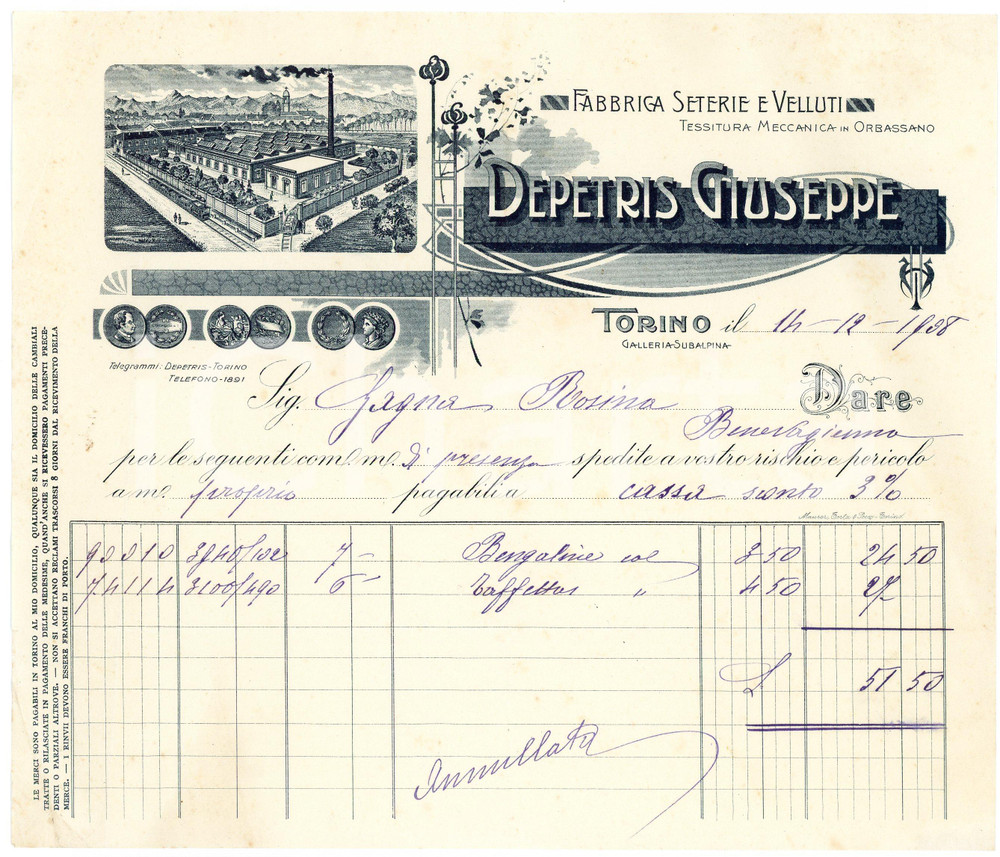 FABBRICA SETERIE E VELLUTI
TESSITURA MECCANICA IN ORBASSANO
DEPETRIS GIUSEPPE
TORINO il 14-12-1908
GALLERIA SUBALPINA
Telegrammi: DEPETRIS-TORINO
TELEFONO-1891
Sig. Gagna Rosina Dare
Benevagienna
per le seguenti com. me. di presenza spedite a vostro rischio e pericolo
a me. proprio pagabili a cassa sconto 3%
90010 3940/102 7- Bengaline col 3 50 24 50
74114 3100/490 6- Taffettas " 4 50 27-
L. 51 50
Annullata
LE MERCI SONO PAGABILI IN TORINO AL MIO DOMICILIO, QUALUNQUE SIA IL DOMICILIO DELLE CAMBIALI
TRATTE O RILASCIATE IN PAGAMENTO DELLE MEDESIME, QUAND'ANCHE SI RICEVESSERO PAGAMENTI PRECE-
DENTI O PARZIALI ALTROVE. — NON SI ACCETTANO RECLAMI TRASCORSI 8 GIORNI DAL RICEVIMENTO DELLA
MERCE. — I RINVII DEVONO ESSERE FRANCHI DI PORTO.